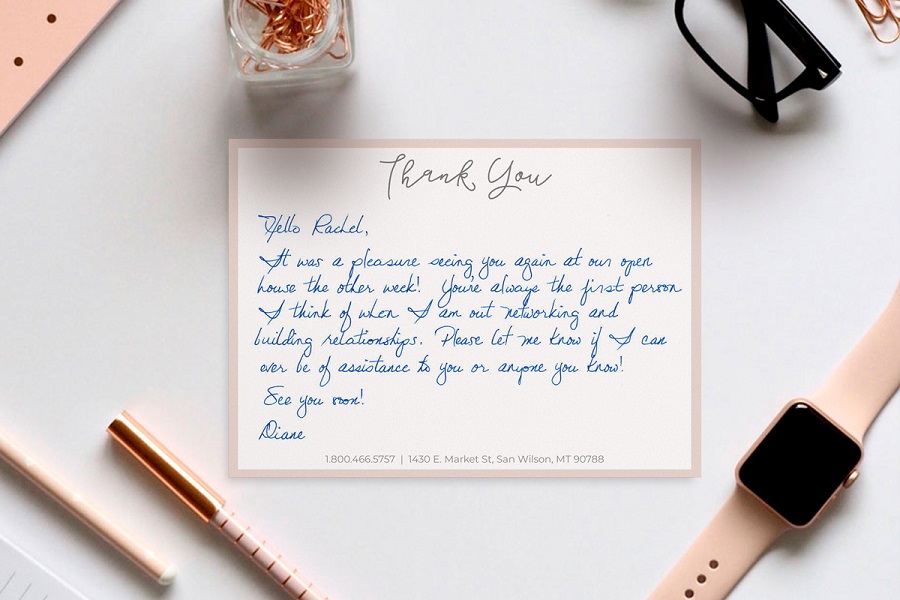 Thank You
Hello Rachel,
It was a pleasure seeing you again at our open
house the other week! You're always the first person
I think of when I am out networking and
building relationships. Please let me know if I can
ever be of assistance to you or anyone you know!
See you soon!
Diane
1.800.466.5757 | 1430 E. Market St, San Wilson, MT 90788